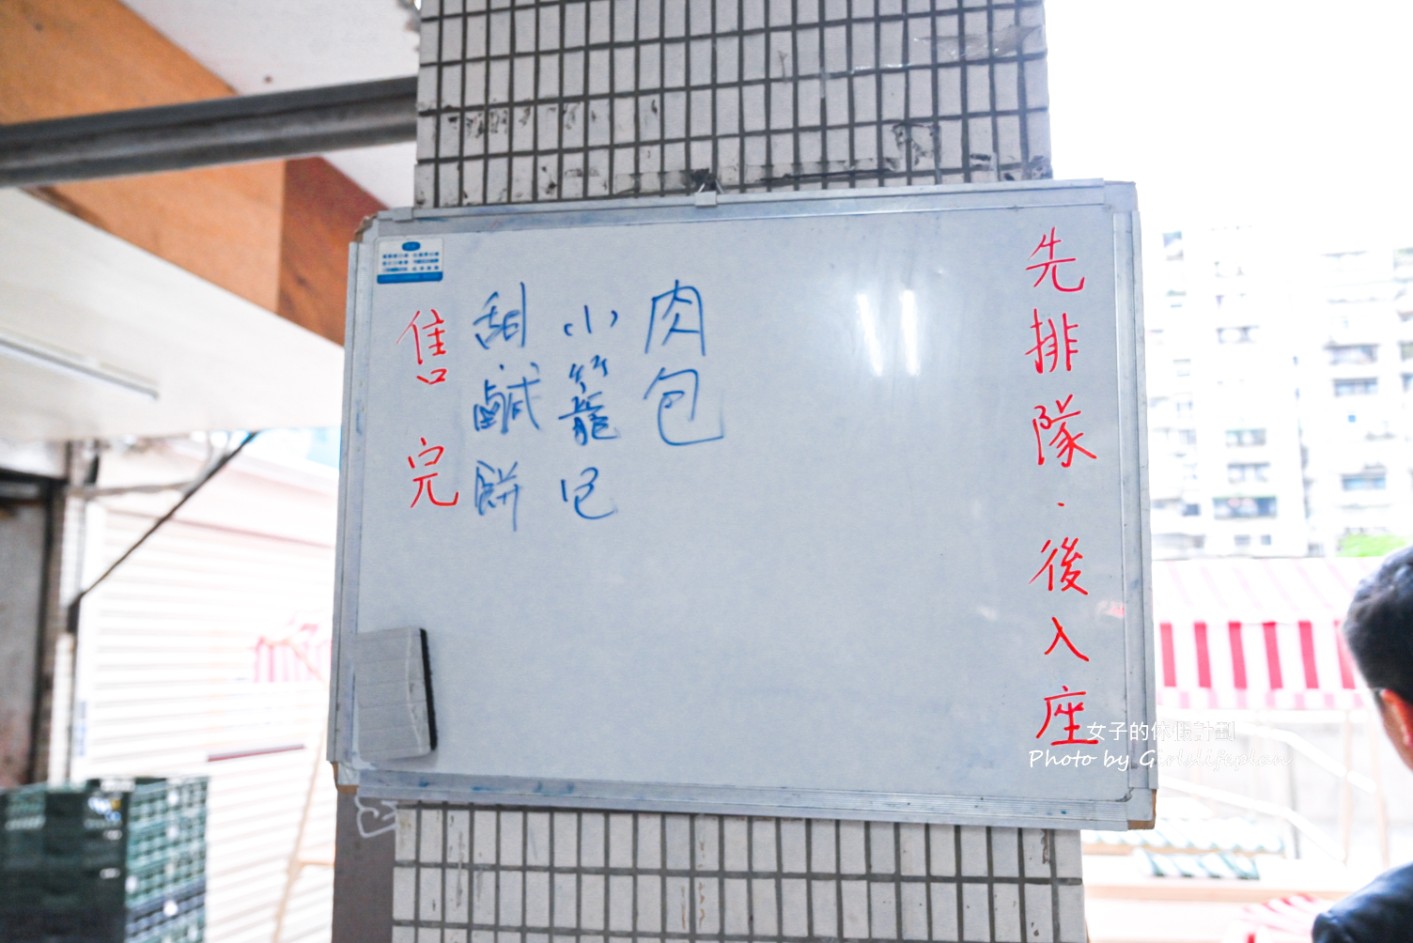 先排隊．後入座
肉包
小籠包
甜鹹餅
售完
女子的休假計劃
Photo by Girlslifeplan